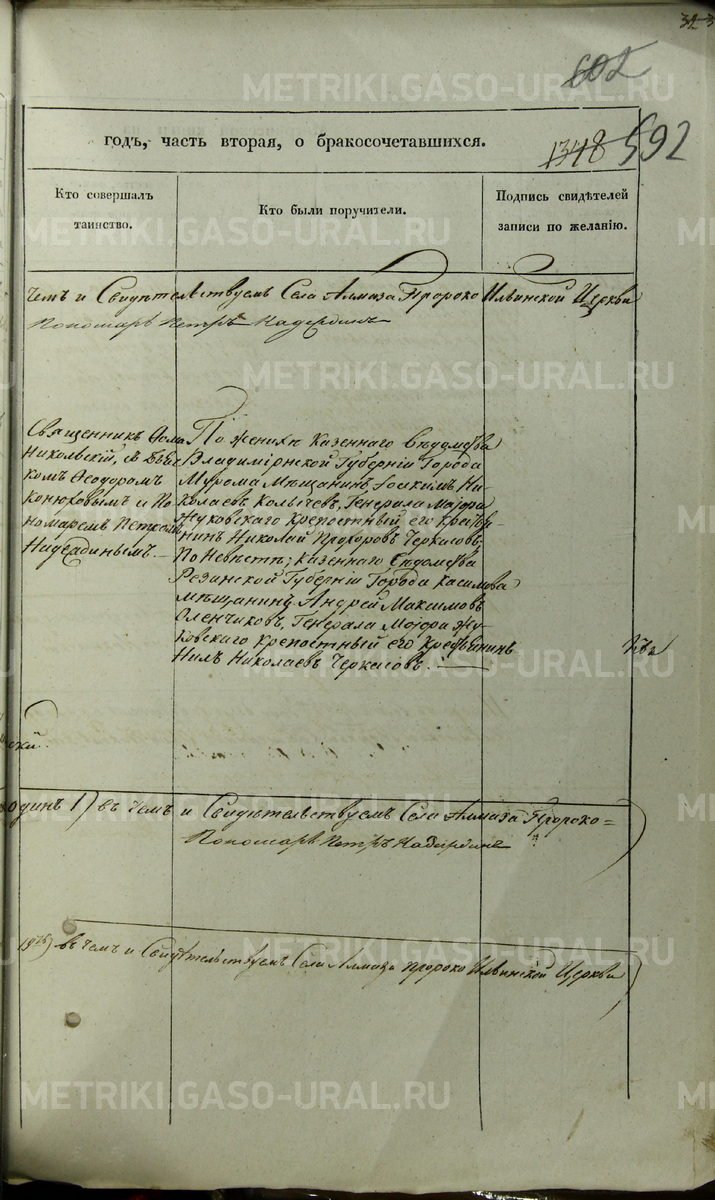 323
602
годъ, часть вторая, о бракосочетавшихся.
1348 592
Кто совершалъ
таинство.
Кто были поручители.
Подпись свидѣтелей
записи по желанію.
чемъ и Свидѣтельствуемъ Села Алмаза Пророко Ильинской Церкви
Пономарь Петръ
Священникъ Ѳома
Никольскій, съ
комъ Ѳеодоромъ
Конюховымъ и По
номаремъ Петромъ
По женихѣ Казеннаго Вѣдомства
Владимірской Губерніи Города
Мурома Мѣщанинъ Іоакимъ Ни-
колаевъ Колычевъ, Генерала Маіора
Жуковскаго крепостный его крестья-
нинъ Николай Прохоровъ Черкасовъ,
По Невѣстѣ; Казеннаго Вѣдомства
Резинской Губерніи Города Касимова
мѣщанинъ Андрей Максимовъ
Оленчиковъ, Генерала Маіора Жу-
ковскаго крепостный его Крестьянинъ
Нилъ Николаевъ Черкасовъ.
одинъ 1) въ чемъ и Свидѣтельствуемъ Села Алмаза Пророко=
Пономарь Петръ
въ чемъ и Свидѣтельствуемъ Села Алмаза Пророко Ильинской Церкви
METRIKI.GASO-URAL.RU